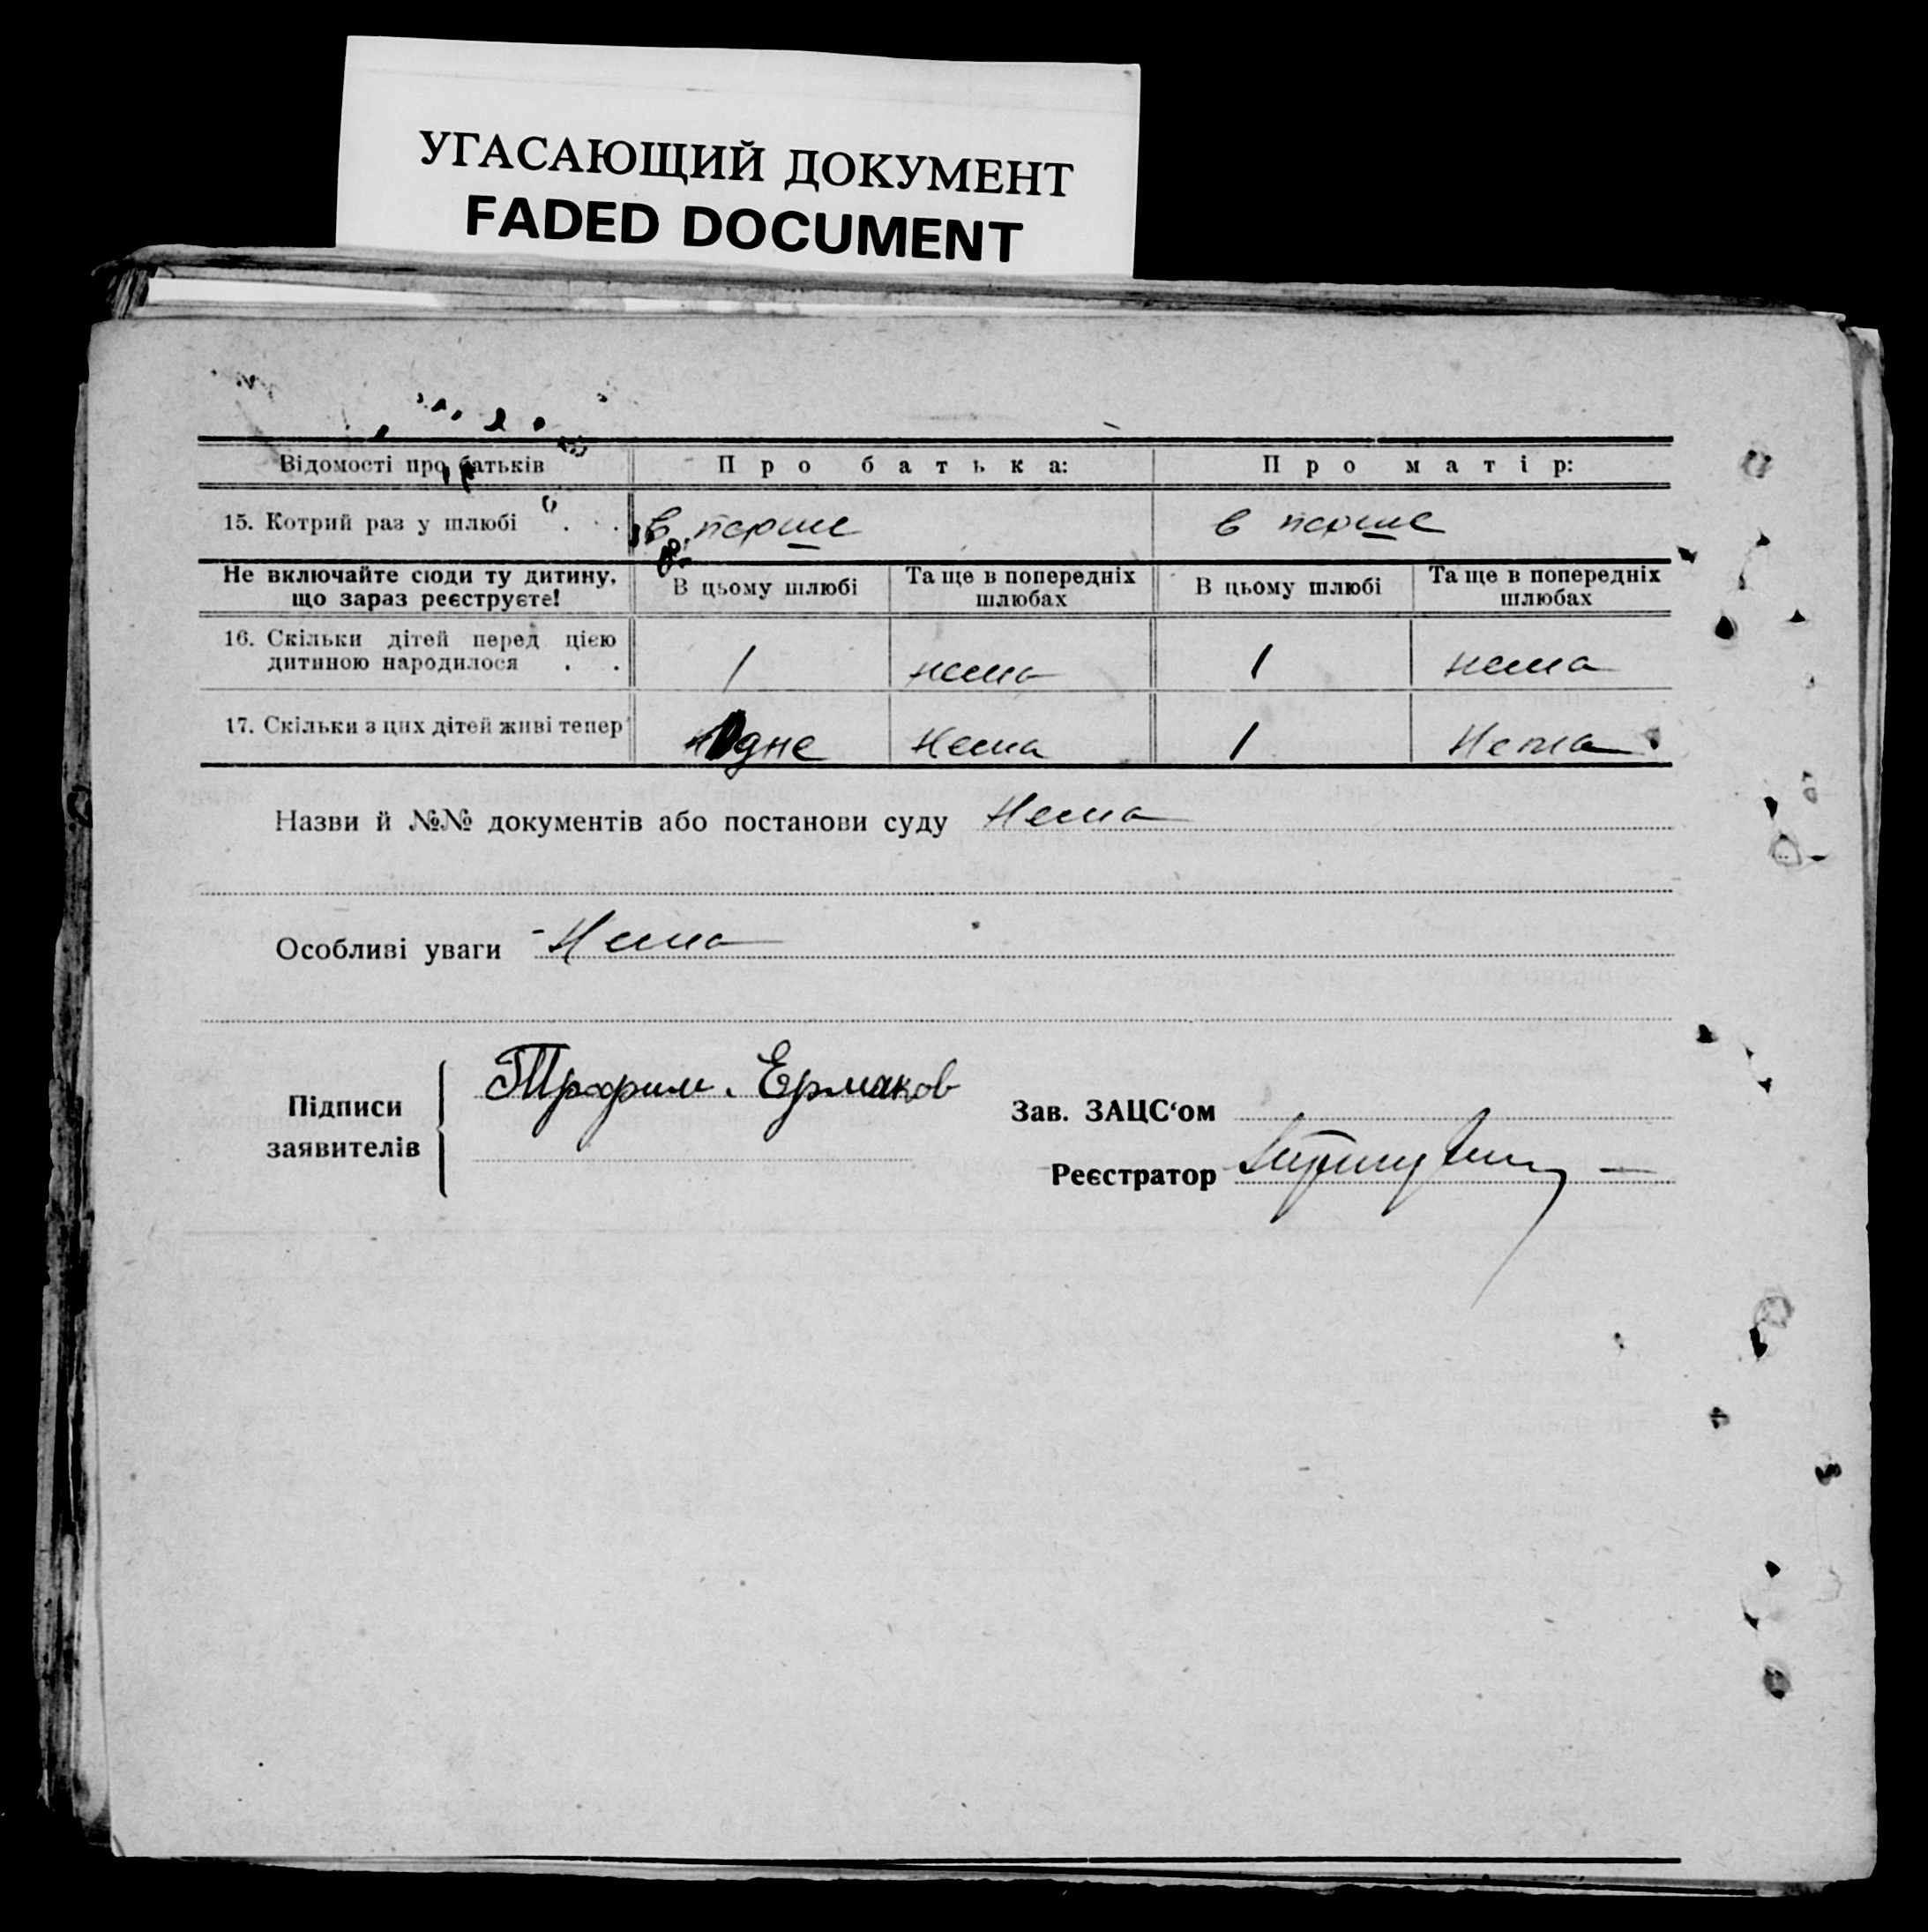 УГАСАЮЩИЙ ДОКУМЕНТ
FADED DOCUMENT
Відомості про батьків Про батька: Про матір:
15. Котрий раз у шлюбі . . в перше в перше
Не включайте сюди ту дитину, що зараз реєструєте! В цьому шлюбі Та ще в попередніх шлюбах В цьому шлюбі Та ще в попередніх шлюбах
16. Скільки дітей перед цією дитиною народилося . . 1 нема 1 нема
17. Скільки з цих дітей живі тепер одне Нема 1 Нема
Назви й №№ документів або постанови суду Нема
Особливі уваги Нема
Підписи заявителів Трофим Ермаков
Зав. ЗАЦС‘ом
Реєстратор